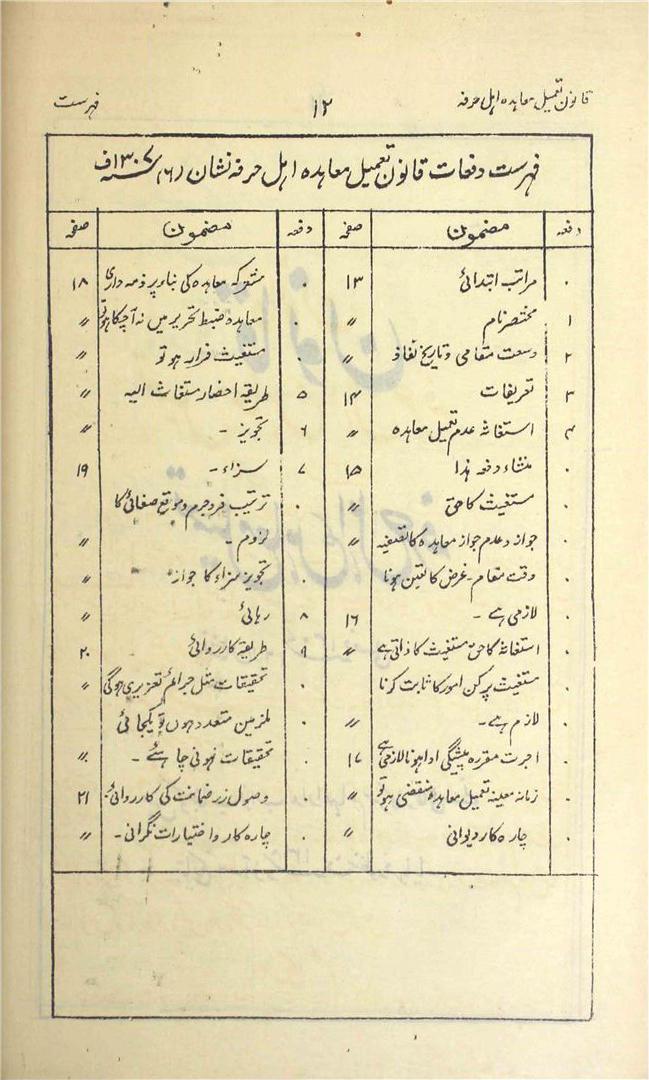 قانون تعمیل معاہدہ اہل حرفہ ۱۲ فہرست
فہرست دفعات قانون تعمیل معاہدہ اہل حرفہ نشان (۶) ۱۳۰۷ سنہ ف
دفعہ مضمون صفحہ
۰ مراتب ابتدائی ۱۳
۱ مختصر نام 〃
۲ وسعت مقامی و تاریخ نفاذ 〃
۳ تعریفات ۱۴
۴ استغاثہ عدم تعمیل معاہدہ 〃
۰ منشاء دفعہ ہذا ۱۵
۰ مستغیث کا حق 〃
۰ جواز و عدم جواز معاہدہ کا تصفیہ 〃
۰ وقت مقام ۔ غرض کا تعین ہونا
۰ لازمی ہے ۔ ۱۶
۰ استغاثہ کا حق مستغیث کا ذاتی ہے 〃
۰ مستغیث پر کن امور کا ثابت کرنا
۰ لازم ہے ۔ 〃
۰ اجرت مقررہ پیشگی ادا ہونا لازمی ہے ۱۷
۰ زمانہ معینہ تعمیل معاہدہ منقضی ہو تو 〃
۰ چارہ کار دیوانی 〃
دفعہ مضمون صفحہ
۰ مشترکہ معاہدہ کی بناء پر ذمہ داری ۱۸
۰ معاہدہ ضبط تحریر میں نہ آچکا ہو تو 〃
۰ مستغیث فرار ہو تو 〃
۵ طریقہ احضار مستغاث الیہ 〃
۶ تجویز ۔ 〃
۷ سزاء ۔ ۱۹
۰ ترتیب فرد جرم و موقع صفائی کا
لزوم ۔ 〃
۰ تجویز سزاء کا جواز 〃
۸ رہائی 〃
۹ طریقہ کارروائی ۲۰
۰ تحقیقات مثل جرائم تعزیری ہوگی 〃
۰ ملزمین متعدد ہوں تو یکجائی
۰ تحقیقات ہونی چاہئے ۔ 〃
۰ وصول زر ضمانت کی کارروائی ۲۱
۰ چارہ کار و اختیارات نگرانی ۔ 〃